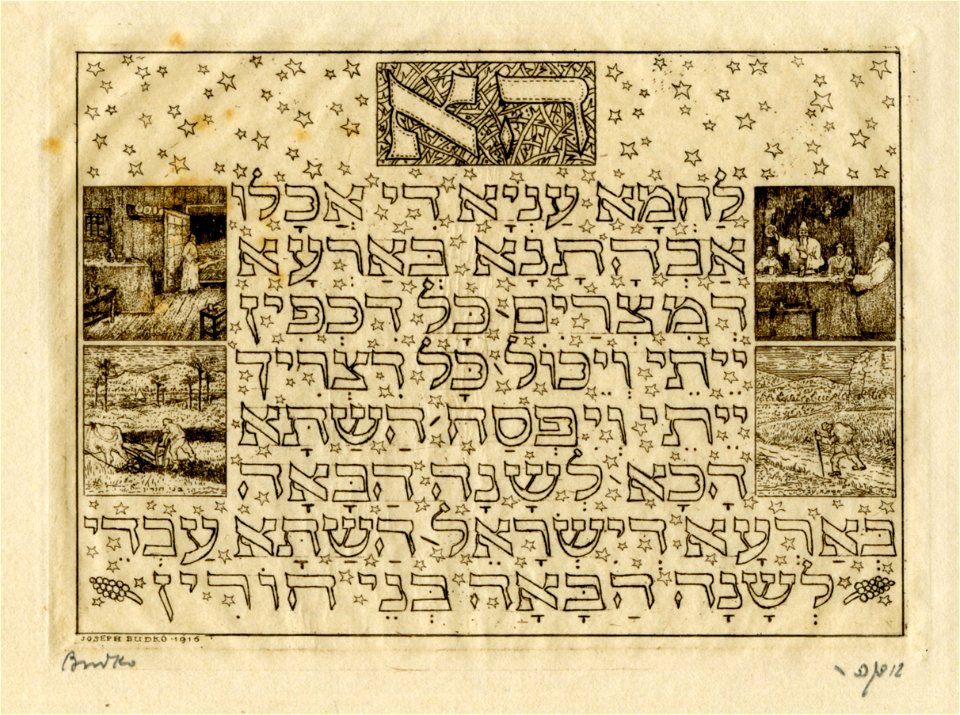 הא
לַחְמָא עַנְיָא דִי אֲכָלוּ
אַבְהָתַנָא בְּאַרְעָא
דְמִצְרָיִם / כָּל דִכְפִין
יֵיתֵי וְיֵיכוֹל / כָּל דִצְרִיךְ
יֵיתֵי וְיִפְסַח / הָשַׁתָּא
הָכָא / לְשָׁנָה הַבָּאָה
בני חורין
בְּאַרְעָא דְיִשְׂרָאֵל / הָשַׁתָּא עַבְדֵי
לְשָׁנָה הַבָּאָה בְּנֵי חוֹרִין
JOSEPH BUDKO · 1916
Budko